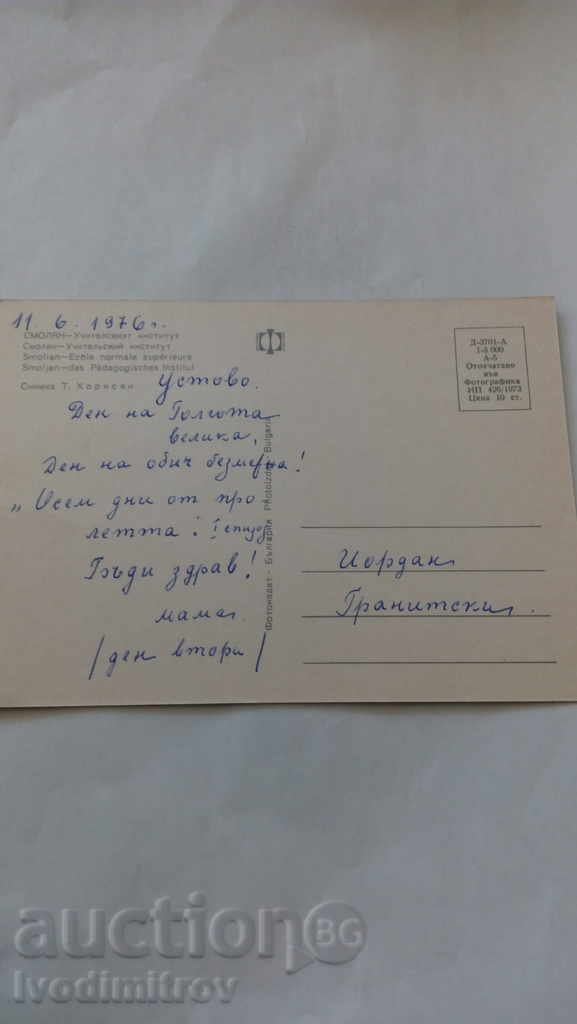 11. 6. 1976 г.
СМОЛЯН—Учителският институт
Смолян—Учительский институт
Smolian—Ecole normale supérieure
Smoljan—das Pädagogisches Institut
Снимка Т. Корисен
Устово.
Ден на Голгота
велика,
Ден на обич безмерна!
„Осем дни от про
летта: I епизод
Бъди здрав!
мама.
/ден втори/
Фотоиздат - България Photoizdat - Bulgaria
Д-3701-А
1-5 000
А-5
Отпечатано
във
Фотографика
НП 426/1973
Цена 10 ст.
Иордан
Гранитски.
auctionBG
Ivodimitrov